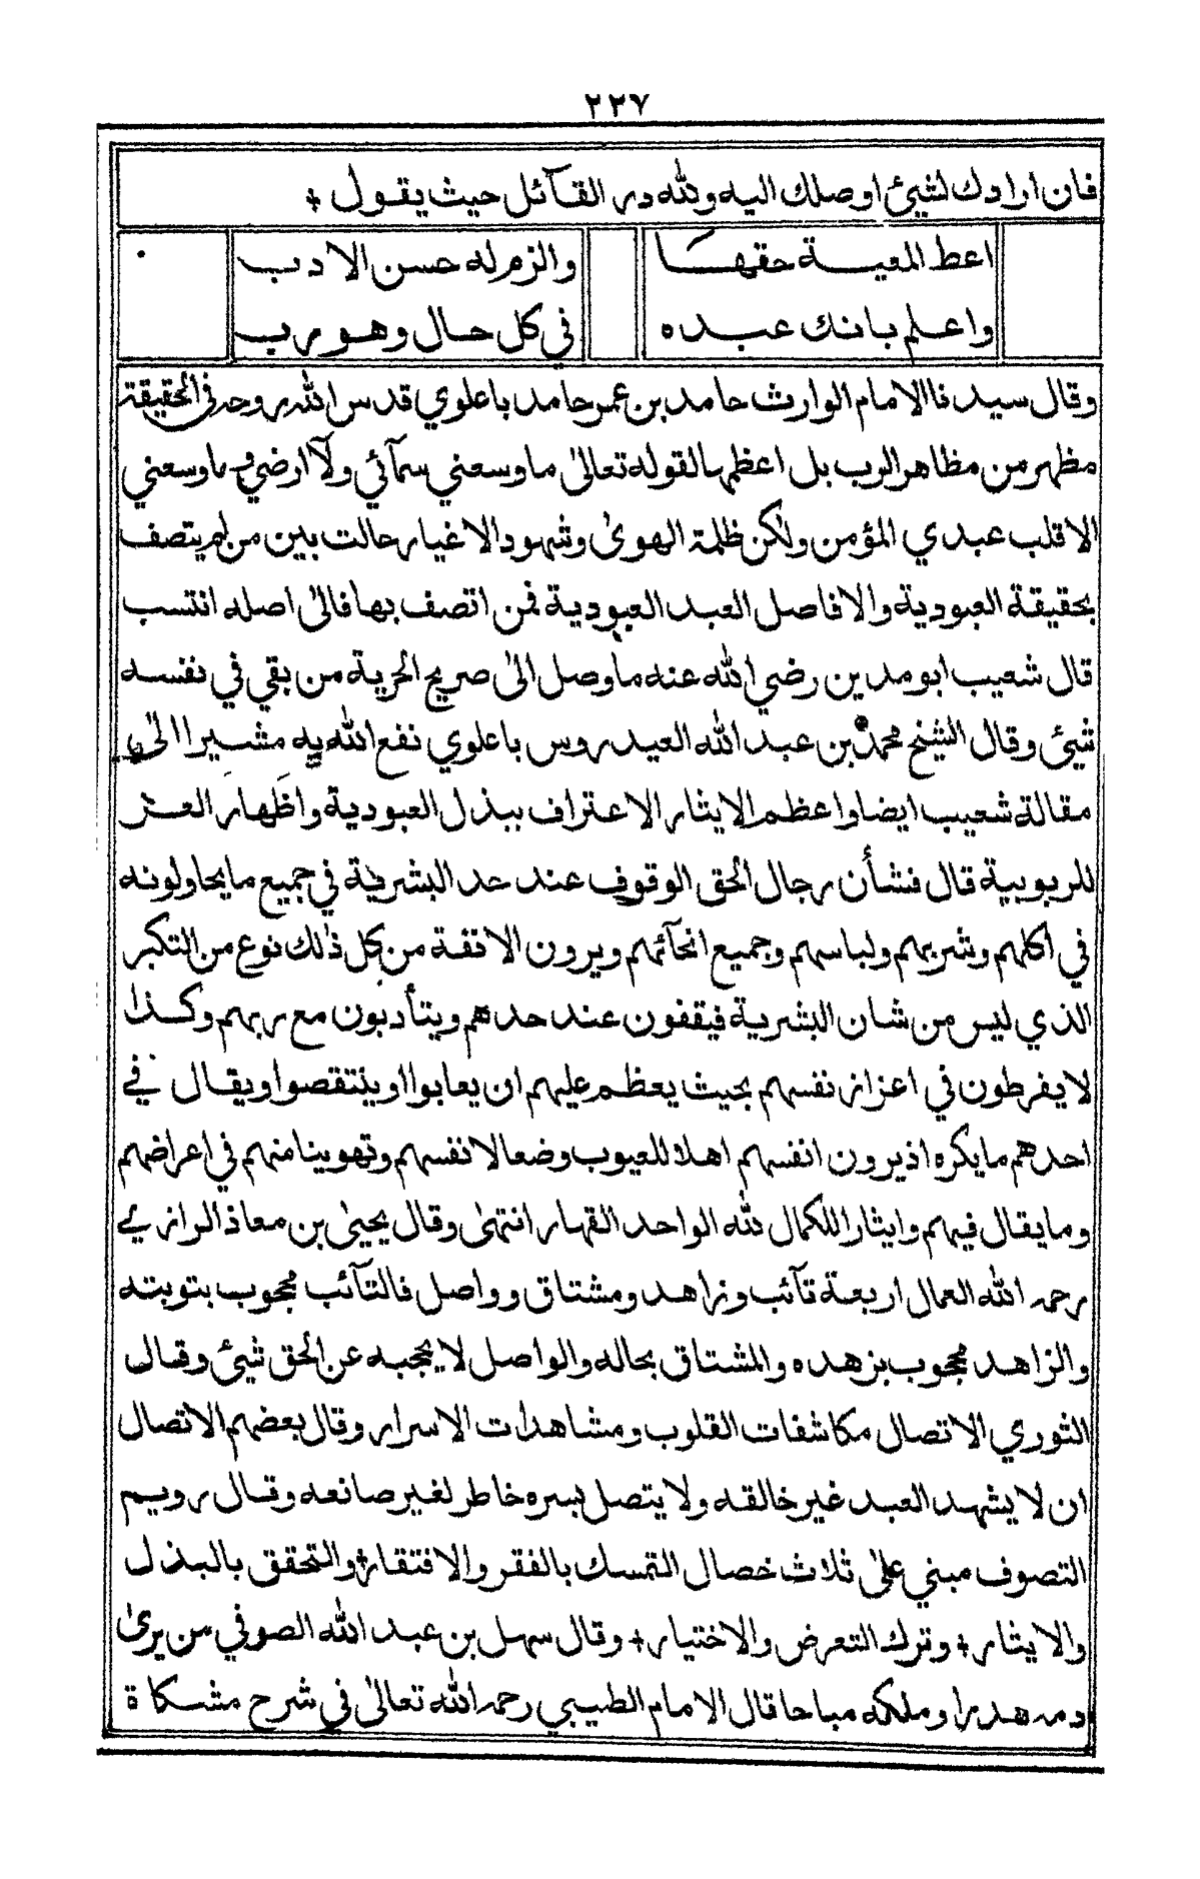 ٢٢٧
فان ارادك لشيئ اوصلك اليه ولله در القآئل حيث يقول +
اعط المعية حقها والزم له حسن الادب
واعلم بانك عبده في كل حال وهو رب
وقال سيدنا الامام الوارث حامد بن عمر حامد باعلوي قدس الله روحه في الحقيقة
مظهر من مظاهر الرب بل اعظمها لقوله تعالىٰ ما وسعني سمآئي ولآ ارضي و ما وسعني
الا قلب عبدي المؤمن ولٰكن ظلمة الهوىٰ وشهود الاغيار حالت بين من لم يتصف
بحقيقة العبودية والا فاصل العبد العبودية فمن اتصف بها فالىٰ اصله انتسب
قال شعيب ابو مدين رضي الله عنه ما وصل الىٰ صريح الحرية من بقي في نفسه
شيئ وقال الشيخ محمد بن عبد الله العيدروس باعلوي نفع الله به مشيرا الىٰ
مقالة شعيب ايضا واعظم الايثار الاعتراف ببذل العبودية واظهار العز
للربوبية قال فشأن رجال الحق الوقوف عند حد البشرية في جميع ما يحاولونه
في اكلهم وشربهم ولباسهم وجميع انحآئهم ويرون الانفة من كل ذٰلك نوع من التكبر
الذي ليس من شان البشرية فيقفون عند حدهم ويتأدبون مع ربهم وكذا
لا يفرطون في اعزاز نفسهم بحيث يعظم عليهم ان يعابوا او ينتقصوا ويقال في
احدهم ما يكره اذ يرون انفسهم اهلا للعيوب وضعا لانفسهم وتهوينا منهم في اعراضهم
وما يقال فيهم وايثارا للكمال لله الواحد القهار انتهىٰ وقال يحيىٰ بن معاذ الرازي
رحمه الله العمال اربعة تآئب وزاهد ومشتاق وواصل فالتآئب محجوب بتوبته
والزاهد محجوب بزهده والمشتاق بحاله والواصل لا يحجبه عن الحق شيئ وقال
الثوري الاتصال مكاشفات القلوب ومشاهدات الاسرار وقال بعضهم الاتصال
ان لا يشهد العبد غير خالقه ولا يتصل بسره خاطر لغير صانعه وقال رويم
التصوف مبني علىٰ ثلاث خصال التمسك بالفقر والافتقار+ والتحقق بالبذل
والايثار + وترك التعرض والاختيار + وقال سهل بن عبد الله الصوفي من يرىٰ
دمه هدرا وملكه مباحا قال الامام الطيبي رحمه الله تعالىٰ في شرح مشكاة